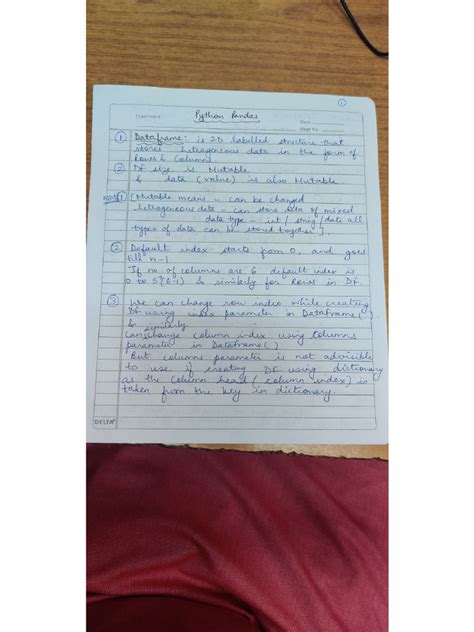 ①
Experiment
Python Pandas
Date
Page No.
① Dataframe: is 2D labelled structure that
stores hetrogeneous data in the form of
Rows & Columns
② DF size is Mutable
& data (value) is also Mutable.
Note 1 [Mutable means - can be changed
hetrogneous data - can store data of mixed
data type - int / string / date all
types of data can be stored together].
② Default index starts from 0, and goes
till n-1
If no of columns are 6 default index is
0 to 5 (6-1) & similarly for Rows in DF.
③ We can change row index while creating
DF using index parameter in Dataframe()
& similarly
Can change column index using Columns
parameter in DataFrame()
But columns parameter is not advisible
to use if creating DF using dictionary
as the column head (column index) is
taken from the key in dictionary.
DELTA